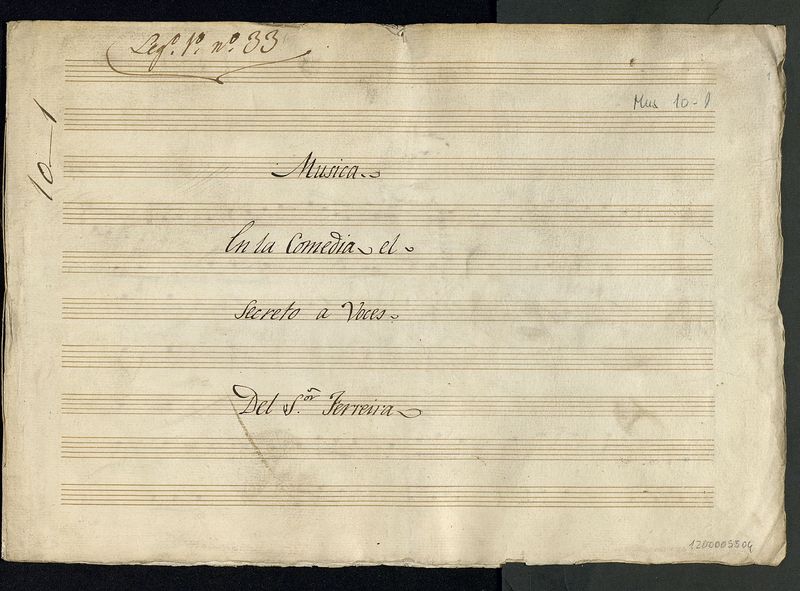 Leg.º 1.º n.º 33
Mus 10-1
10-1
Musica.
En la Comedia el
Secreto a Voces.
Del S.ᵒʳ Ferreira
1200005504